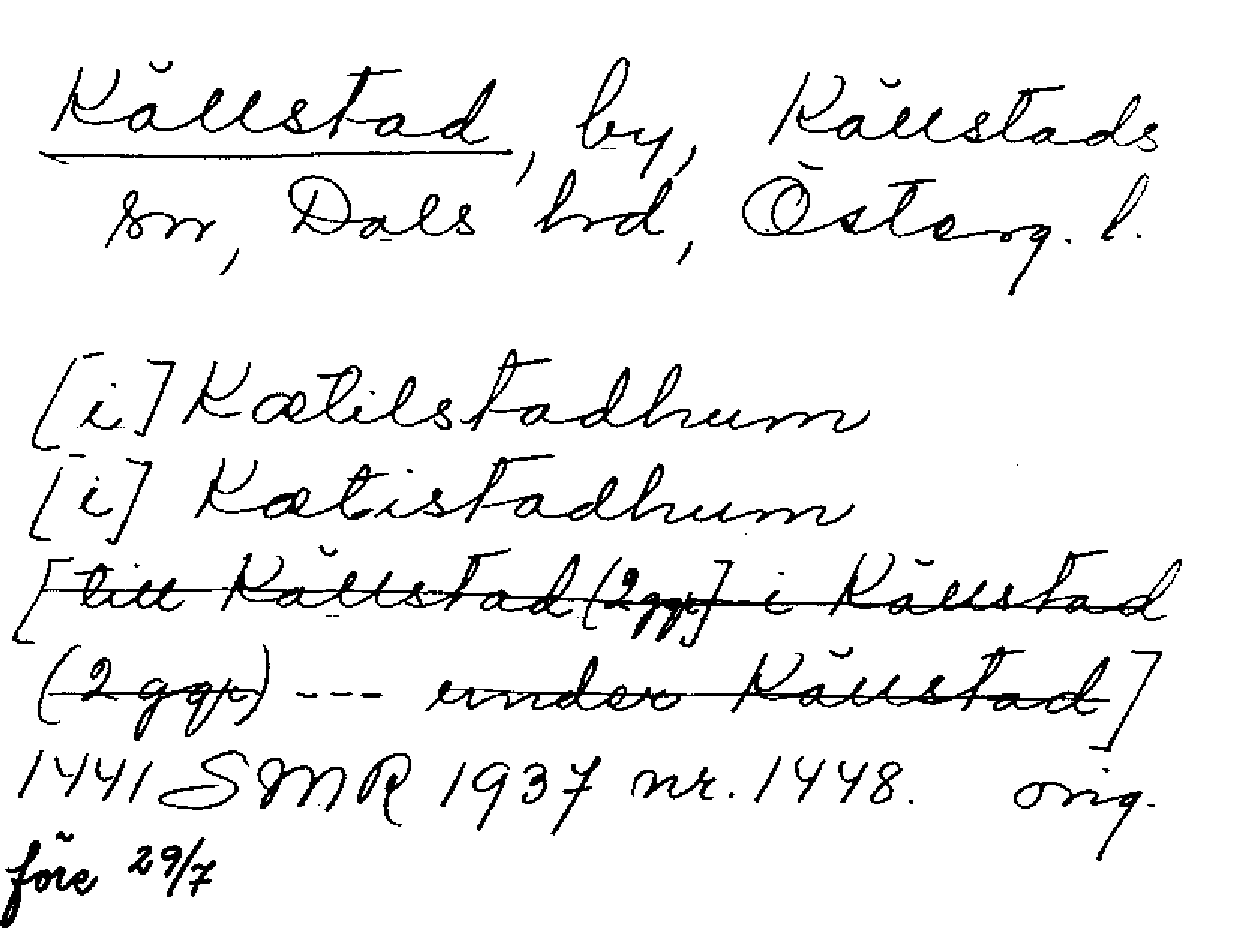 Källstad, by, Källstads
sn, Dals hrd, Österg. l.
[i] Kætilstadhum
[i] Kætistadhum
[till Källstad (2ggr] i Källstad
(2 ggr) --- under Källstad]
1441 SMR 1937 nr. 1448. orig.
före 29/7